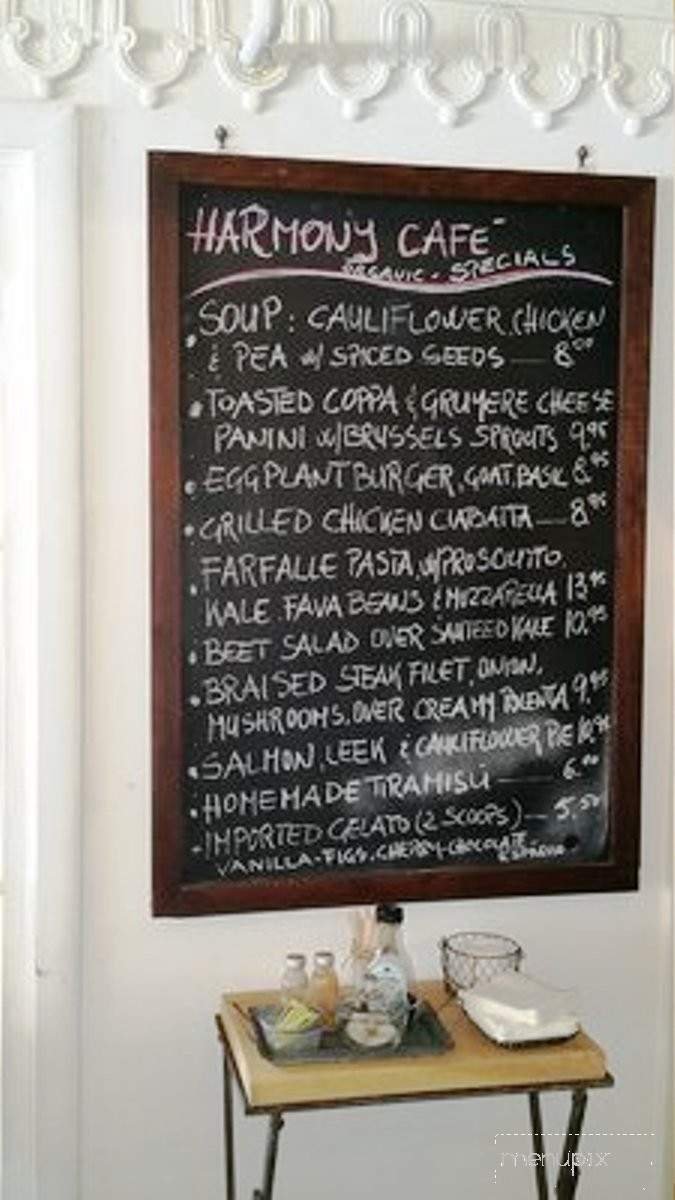 HARMONY CAFE
ORGANIC - SPECIALS
SOUP: CAULIFLOWER, CHICKEN
& PEA W/ SPICED SEEDS — 8.00
• TOASTED COPPA & GRUYERE CHEESE
PANINI W/BRUSSELS SPROUTS 9.95
• EGGPLANT BURGER, GOAT, BASIL 8.95
• GRILLED CHICKEN CIABATTA — 8.95
• FARFALLE PASTA, W/PROSCUITTO,
KALE, FAVA BEANS & MOZZARELLA 13.95
• BEET SALAD OVER SAUTEED KALE 10.95
• BRAISED STEAK FILET, ONION,
MUSHROOMS, OVER CREAMY POLENTA 9.95
• SALMON, LEEK & CAULIFLOWER PIE 10.95
• HOMEMADE TIRAMISU — 6.00
- IMPORTED GELATO (2 SCOOPS) — 5.50
VANILLA - FIGS, CHERRY - CHOCOLATE
menupix